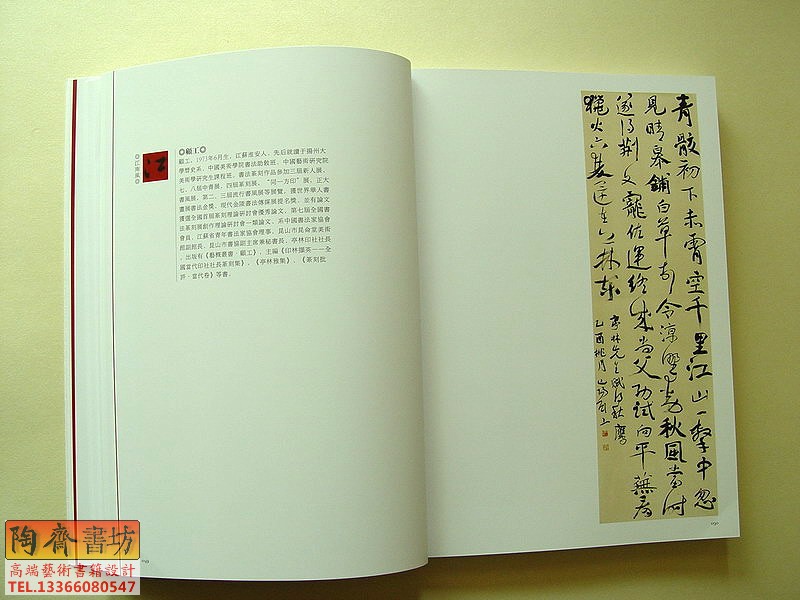 ◎江南風◎
江
◎顧工◎
顧工，1973年6月生，江蘇淮安人。先后就讀于揚州大
學歷史系、中國美術學院書法助教班、中國藝術研究院
美術學研究生課程班。書法篆刻作品參加三屆新人展、
七、八屆中青展、四屆篆刻展、“同一方印”展、正大
書風展、第二、三屆流行書風展等展覽，獲世界華人書
畫展書法金獎、現代金陵書法傳媒提名獎，並有論文
獲選全國首屆篆刻理論研討會優秀論文、第七屆全國書
法篆刻展創作理論研討會一類論文。系中國書法家協會
會員，江蘇省青年書法家協會理事，昆山市昆侖堂美術
館副館長、昆山市書協副主席兼秘書長、亭林印社社長
。出版有《藝概叢書·顧工》，主編《印林擷英——全
國當代印社社長篆刻集》、《亭林雅集》、《篆刻批
評·當代卷》等書。
青骹初下赤霄空千里江山一擊中忽
見晴皋鋪白草頓令涼野動秋風當時
遂得荊文寵佐運終成尚父功試向平蕪看
獵火六雙還在上林東
亭林先生賦得秋鷹
乙酉桃月山陽顧工
陶齋書坊
高端藝術書籍設計
TEL.13366080547